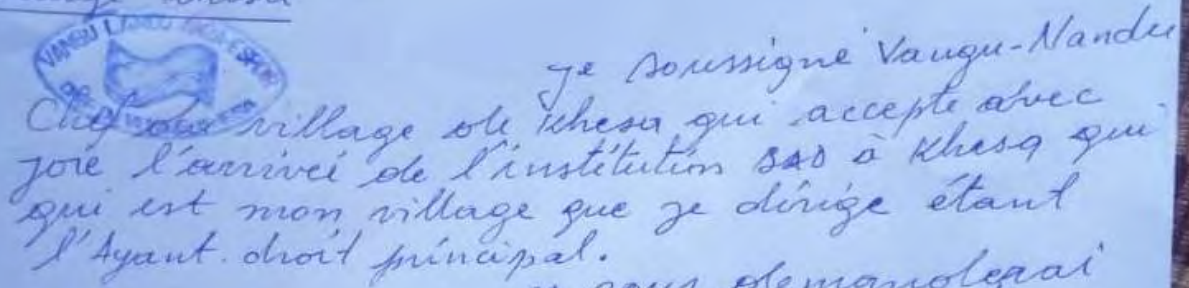 Khesa
VANGU LANDU
je soussigné Vangu-Nandu
Chef du village de Khesa qui accepte avec
joie l'arrivéi de l'institution SAD à Khesa qui
qui est mon village que je dirige étant
l'Ayant-droit principal.
vous demanderai